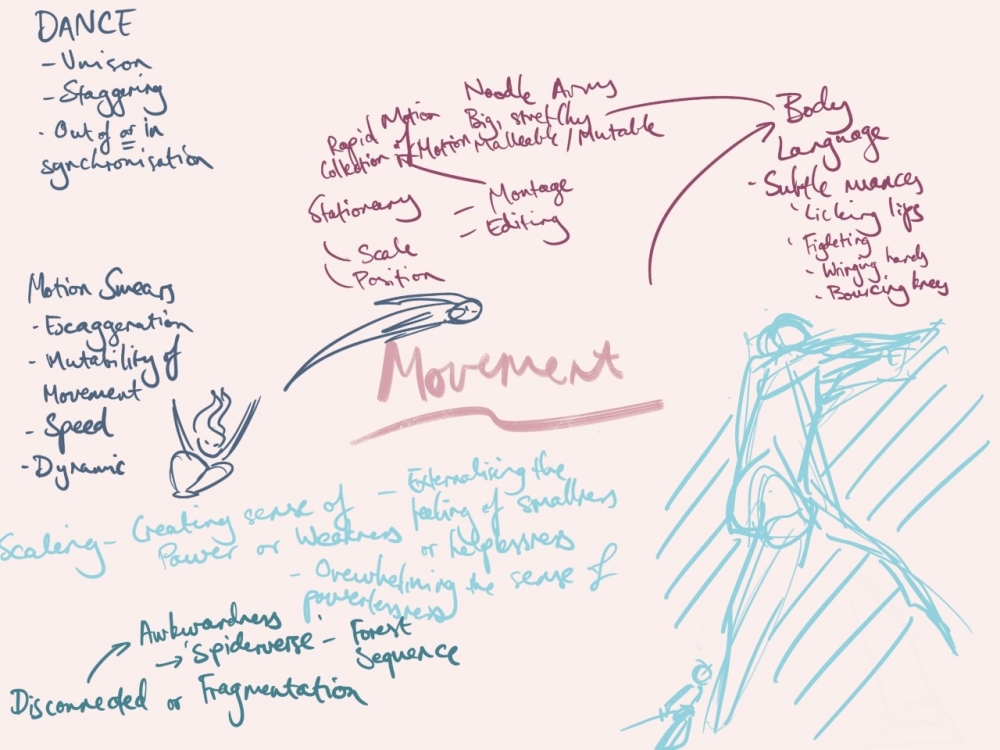 DANCE
- Unison
- Staggering
- Out of or in
synchronisation
Noodle Arms
Big, stretchy
Malleable / Mutable
Rapid Motion
Collection of Motion
- Montage
- Editing
Stationary
Scale
Position
Body
Language
- Subtle nuances
- Licking lips
- Figdeting
- Wringing hands
- Bouncing knees
Motion Smears
- Exaggeration
- Mutability of
Movement
- Speed
- Dynamic
Movement
Scaling - Creating sense of
Power or Weakness
- Externalising the
feeling of smallness
or helplessness
- Overwhelming the sense of
powerlessness
Awkwardness
→ 'Spiderverse' - Forest
Sequence
Disconnected or Fragmentation